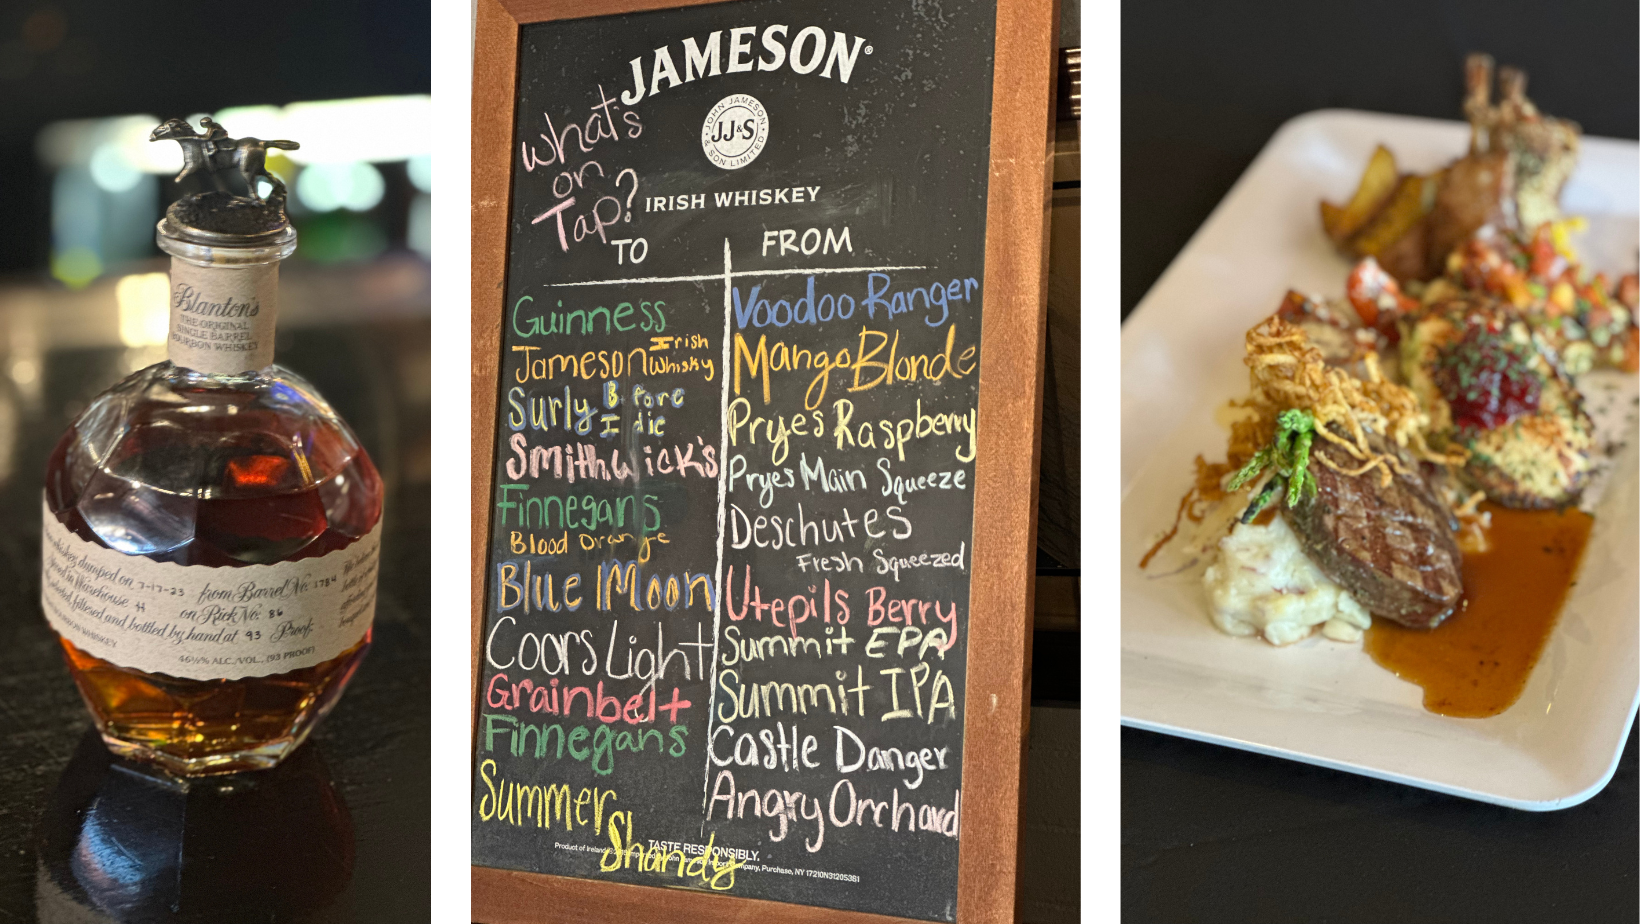 Blanton's
THE ORIGINAL
SINGLE BARREL
BOURBON WHISKEY
whiskey dumped on 7-17-23 from Barrel No. 1784
Warehouse H on Rick No. 86
and bottled by hand at 93 Proof.
BOURBON WHISKEY
46½% ALC./VOL. (93 PROOF)
JAMESON®
JOHN JAMESON
JJ&S
& SON LIMITED
IRISH WHISKEY
What's
on
Tap?
TO
FROM
Guinness
Jameson Irish
Whisky
Surly B fore
I die
Smithwick's
Finnegans
Blood Orange
Blue Moon
Coors Light
Grainbelt
Finnegans
Summer
Shandy
Voodoo Ranger
Mango Blonde
Pryes Raspberry
Pryes Main Squeeze
Deschutes
Fresh Squeezed
Utepils Berry
Summit EPA
Summit IPA
Castle Danger
Angry Orchard
TASTE RESPONSIBLY.
Product of Ireland Purchase, NY